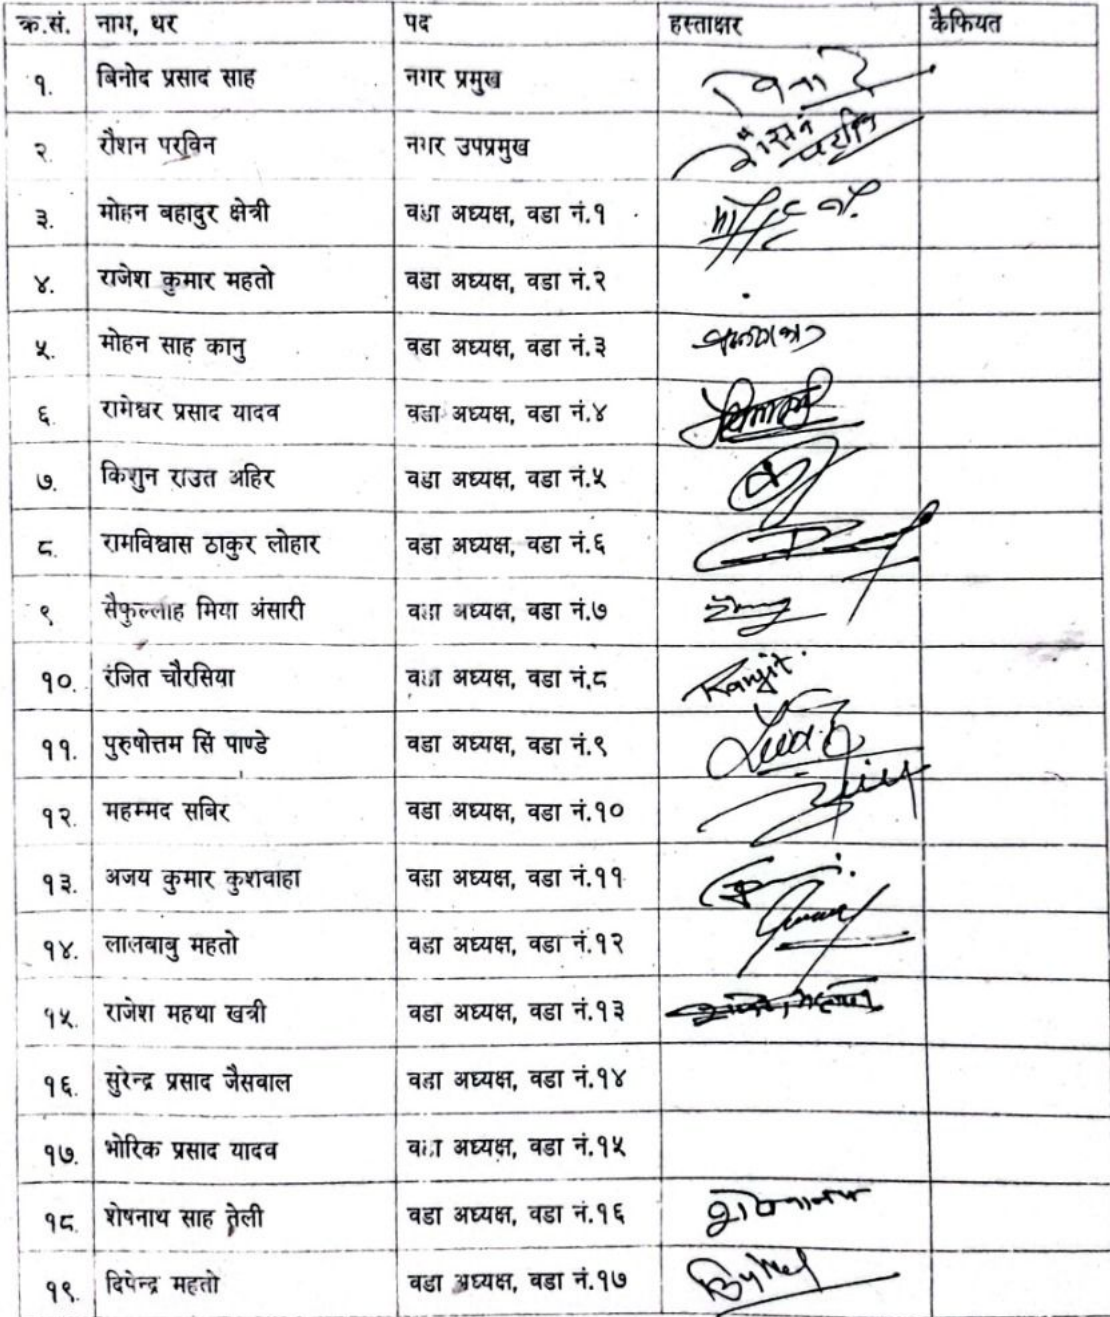 क्र.सं. नाम, थर पद हस्ताक्षर कैफियत
१. बिनोद प्रसाद साह नगर प्रमुख
२. रौशन परविन नगर उपप्रमुख रौसन परविन
३. मोहन बहादुर क्षेत्री वडा अध्यक्ष, वडा नं.१
४. राजेश कुमार महतो वडा अध्यक्ष, वडा नं.२
५. मोहन साह कानु वडा अध्यक्ष, वडा नं.३
६. रामेश्वर प्रसाद यादव वडा अध्यक्ष, वडा नं.४
७. किशुन राउत अहिर वडा अध्यक्ष, वडा नं.५
८. रामविश्वास ठाकुर लोहार वडा अध्यक्ष, वडा नं.६
९ सैफुल्लाह मिया अंसारी वडा अध्यक्ष, वडा नं.७
१०. रंजित चौरसिया वडा अध्यक्ष, वडा नं.८ Ranjit
११. पुरुषोत्तम सिं पाण्डे वडा अध्यक्ष, वडा नं.९
१२. महम्मद सबिर वडा अध्यक्ष, वडा नं.१०
१३. अजय कुमार कुशवाहा वडा अध्यक्ष, वडा नं.११
१४. लालबाबु महतो वडा अध्यक्ष, वडा नं.१२
१५. राजेश महथा खत्री वडा अध्यक्ष, वडा नं.१३
१६. सुरेन्द्र प्रसाद जैसवाल वडा अध्यक्ष, वडा नं.१४
१७. भोरिक प्रसाद यादव वडा अध्यक्ष, वडा नं.१५
१८. शेषनाथ साह तेली वडा अध्यक्ष, वडा नं.१६
१९. दिपेन्द्र महतो वडा अध्यक्ष, वडा नं.१७